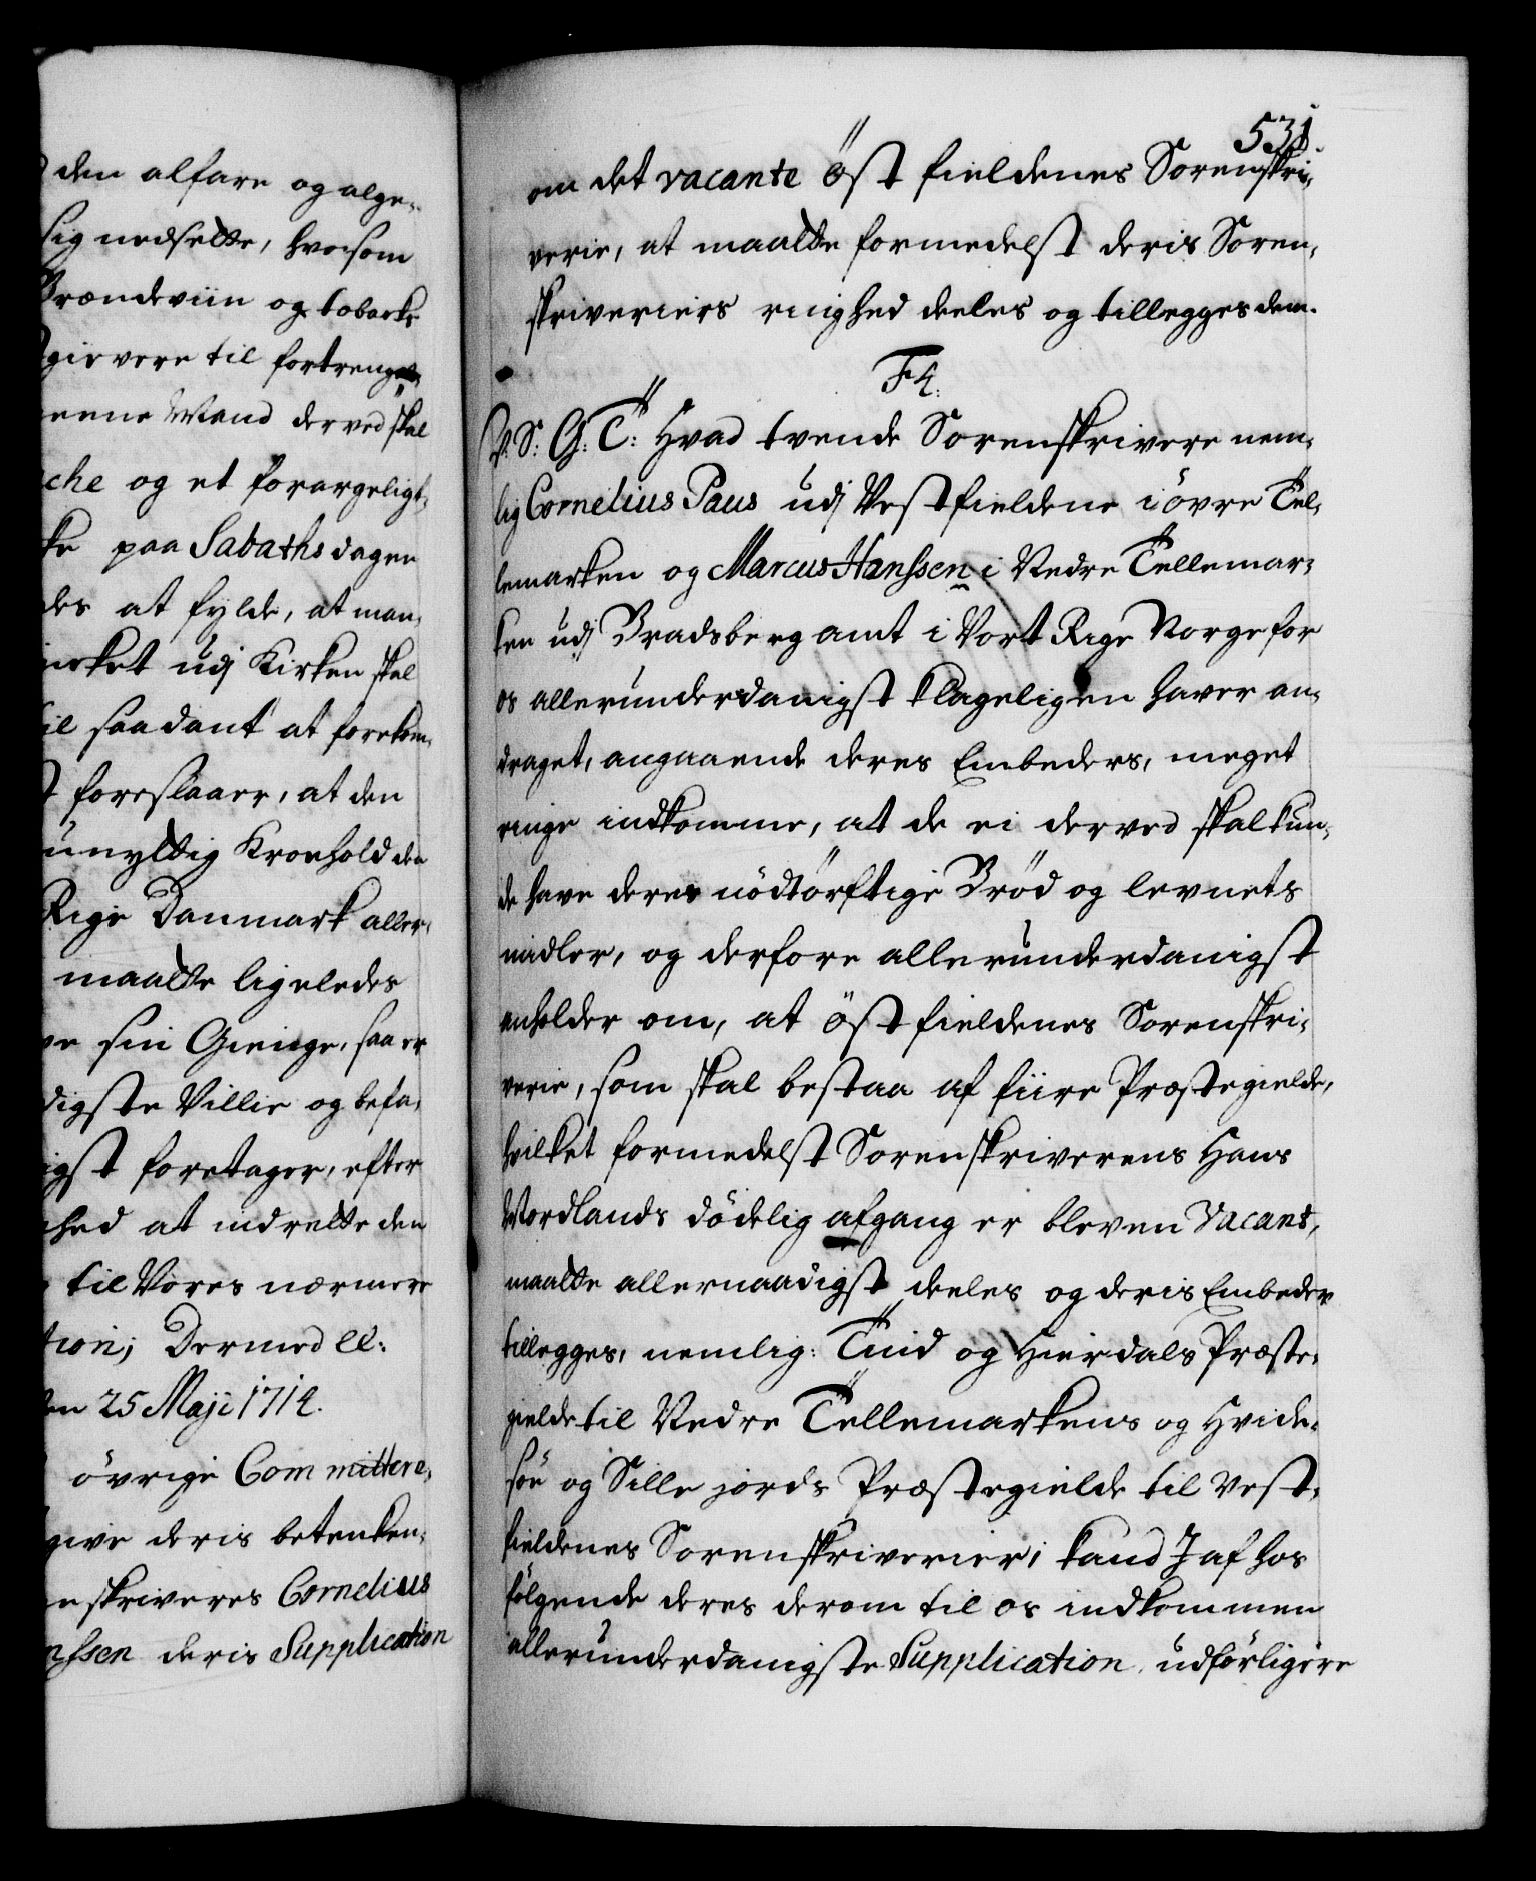 den alfare og alge-
sig nedsette, hvosom
Brændeviin og toback
give vere til fortreng
eene Mand derved skal
che og et forargeligt,
ke paa Sabaths dagen
des at fylde, at man,
merket udj Kirken skal
til saadant at forekom,
foreslaaer, at den
unyttig Kroehold den
Rige Danmark aller,
maatte ligeledes
ve sin Gienge, saa er
digste Villie og befa,
igst foretager, efter
hed at indrette den
til Vores nærmere
tion; Dermed &c:
den 25 Maji 1714.
övrige Committere,
give deris betenken,
en skriveres Cornelius
nssen deris Supplication
531.
om det vacante Öst fieldenes Sorenskri,
verie, at maatte formedelst deris Soren,
skriveriers ringhed deeles og tillegges dem.
F4.
V. S: G: T: Hvad tvende Sorenskrivere nem,
lig Cornelius Paus udj Vestfieldene i övre Tel,
lemarken og Marcus Hanssen i Nedre Tellemar,
ken udj Bradsberg amt i Vort Rige Norge for
os allerunderdanigst klageligen haver an,
draget, angaaende deres Embeders, meget
ringe indkomme, at de ei derved skal kun,
de have deres nödtörftige Bröd og levnets
midler, og derfore allerunderdanigst
anholder om, at östfieldenes Sorenskri,
verie, som skal bestaa af fiire Præstegielde,
hvilket formedelst Sorenskriverens Hans
Wordlands dödelig afgang er bleven vacant,
maatte allernaadigst deeles og deris Embeder
tillegges, nemlig: Tind og Hierdals Præste,
gielde til Nedre Tellemarkens og Hvide,
söe og Sille jords Præstegielde til Vest,
fieldenes Sorenskriverier; kand I af hos
fölgende deres derom til os indkommen
allerunderdanigste Supplication, udförligere